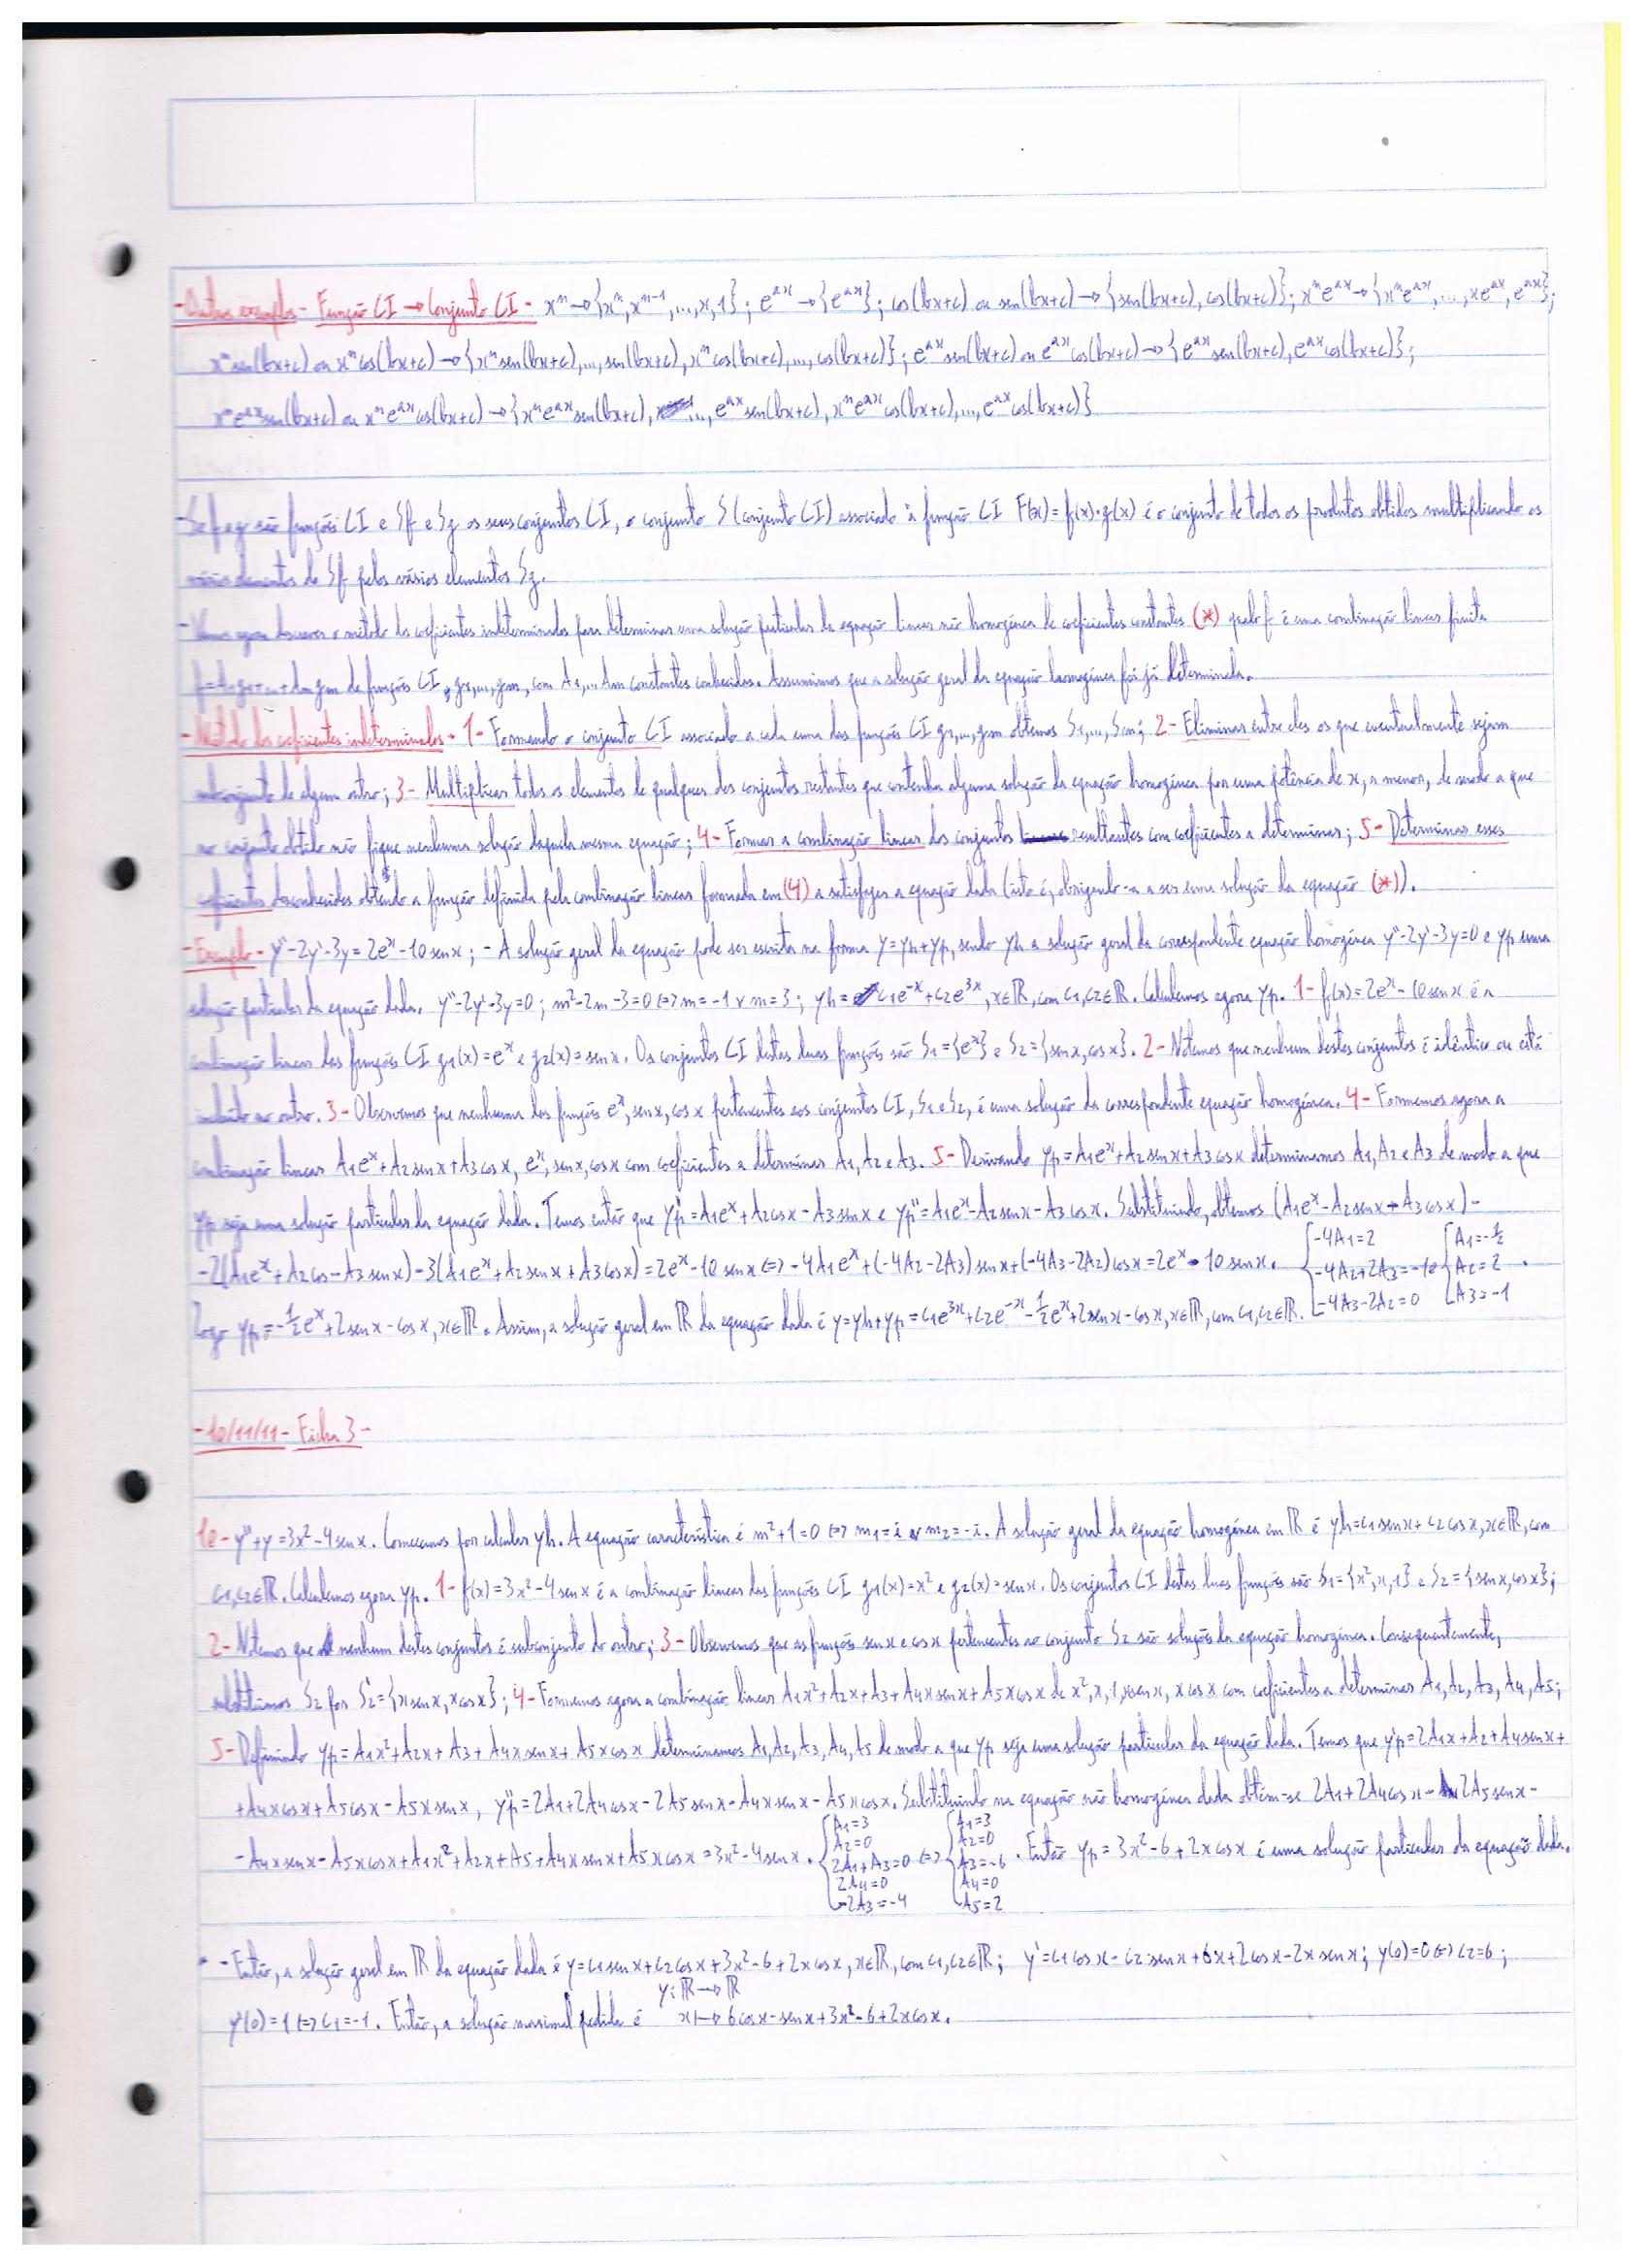 -Outros exemplos- Função CI → Conjunto CI - xⁿ→{xⁿ,xⁿ⁻¹,...,x,1}; e^ax→{e^ax}; cos(bx+c) ou sen(bx+c)→{sen(bx+c), cos(bx+c)}; xⁿe^ax→{xⁿe^ax,...,xe^ax,e^ax};
xⁿsen(bx+c) ou xⁿcos(bx+c)→{xⁿsen(bx+c),...,sen(bx+c), xⁿcos(bx+c),...,cos(bx+c)}; e^ax sen(bx+c) ou e^ax cos(bx+c)→{e^ax sen(bx+c), e^ax cos(bx+c)};
xⁿe^ax sen(bx+c) ou xⁿe^ax cos(bx+c)→{xⁿe^ax sen(bx+c), ..., e^ax sen(bx+c), xⁿe^ax cos(bx+c),...,e^ax cos(bx+c)}
-Se f e g são funções CI e Sf e Sg os seus conjuntos CI, o conjunto S (conjunto CI) associado à função CI F(x)=f(x)·g(x) é o conjunto de todos os produtos obtidos multiplicando os
vários elementos de Sf pelos vários elementos Sg.
-Vamos agora descrever o método dos coeficientes indeterminados para determinar uma solução particular da equação linear não homogénea de coeficientes constantes (*) quando f é uma combinação linear finita
f=A1g1+...+Amgm de funções CI, g1,...,gm, com A1,...Am constantes conhecidas. Assumimos que a solução geral da equação homogénea foi já determinada.
-Método dos coeficientes indeterminados- 1- Formando o conjunto CI associado a cada uma das funções CI g1,...,gm obtemos S1,...,Sm; 2- Eliminar entre eles os que eventualmente sejam
subconjunto de algum outro; 3- Multiplicar todos os elementos de qualquer dos conjuntos restantes que contenha alguma solução da equação homogénea por uma potência de x, a menor, de modo a que
no conjunto obtido não fique nenhuma solução daquela mesma equação; 4- Formar a combinação linear dos conjuntos resultantes com coeficientes a determinar; 5- Determinar esses
coeficientes desconhecidos obtendo a função definida pela combinação linear formada em (4) a satisfazer a equação dada (isto é, obrigando-a a ser uma solução da equação (*)).
-Exemplo- y''-2y'-3y=2e^x-10senx; - A solução geral da equação pode ser escrita na forma y=yh+yp, sendo yh a solução geral da correspondente equação homogénea y''-2y'-3y=0 e yp uma
solução particular da equação dada. y''-2y'-3y=0; m²-2m-3=0⇔m=-1 ∨ m=3; yh=c1e^-x+c2e^3x, x∈ℝ, com c1,c2∈ℝ. Calculemos agora yp. 1- f(x)=2e^x-10senx é a
combinação linear das funções CI g1(x)=e^x e g2(x)=senx. Os conjuntos CI destas duas funções são S1={e^x} e S2={senx,cosx}. 2- Notemos que nenhum destes conjuntos é idêntico ou está
incluído no outro. 3- Observemos que nenhuma das funções e^x, senx, cosx pertencentes aos conjuntos CI, S1 e S2, é uma solução da correspondente equação homogénea. 4- Formemos agora a
combinação linear A1e^x+A2senx+A3cosx, e^x, senx, cosx com coeficientes a determinar A1, A2 e A3. 5- Derivando yp=A1e^x+A2senx+A3cosx determinemos A1, A2 e A3 de modo a que
yp seja uma solução particular da equação dada. Temos então que yp'=A1e^x+A2cosx-A3senx e yp''=A1e^x-A2senx-A3cosx. Substituindo, obtemos (A1e^x-A2senx+A3cosx)-
-2(A1e^x+A2cos-A3senx)-3(A1e^x+A2senx+A3cosx)=2e^x-10senx⇔-4A1e^x+(-4A2-2A3)senx+(-4A3-2A2)cosx=2e^x-10senx. {-4A1=2 -4A2+2A3=-10 -4A3-2A2=0 {A1=-1/2 A2=2 A3=-1.
Logo yp=-1/2e^x+2senx-cosx, x∈ℝ. Assim, a solução geral em ℝ da equação dada é y=yh+yp=c1e^3x+c2e^-x-1/2e^x+2senx-cosx, x∈ℝ, com c1,c2∈ℝ.
-10/11/11- Ficha 3-
1e- y''+y=3x²-4senx. Comecemos por calcular yh. A equação característica é m²+1=0⇔m1=i ∨ m2=-i. A solução geral da equação homogénea em ℝ é yh=c1senx+c2cosx, x∈ℝ, com
c1,c2∈ℝ. Calculemos agora yp. 1- f(x)=3x²-4senx é a combinação linear das funções CI g1(x)=x² e g2(x)=senx. Os conjuntos CI destas duas funções são S1={x²,x,1} e S2={senx,cosx};
2- Notemos que nenhum destes conjuntos é subconjunto do outro; 3- Observemos que as funções senx e cosx pertencentes ao conjunto S2 são soluções da equação homogénea. Consequentemente,
substituímos S2 por S2'={xsenx,xcosx}; 4- Formemos agora a combinação linear A1x²+A2x+A3+A4xsenx+A5xcosx de x²,x,1,xsenx, xcosx com coeficientes a determinar A1, A2, A3, A4, A5;
5- Definindo yp=A1x²+A2x+A3+A4xsenx+A5xcosx determinemos A1, A2, A3, A4, A5 de modo a que yp seja uma solução particular da equação dada. Temos que yp'=2A1x+A2+A4senx+
+A4xcosx+A5cosx-A5xsenx, yp''=2A1+2A4cosx-2A5senx-A4xsenx-A5xcosx. Substituindo na equação não homogénea dada obtém-se 2A1+2A4cosx-2A5senx-
-A4xsenx-A5xcosx+A1x²+A2x+A5+A4xsenx+A5xcosx=3x²-4senx. {A1=3 A2=0 2A1+A3=0 2A4=0 -2A3=-4 ⇔ {A1=3 A2=0 A3=-6 A4=0 A5=2. Então yp=3x²-6+2xcosx é uma solução particular da equação dada.
-Então, a solução geral em ℝ da equação dada é y=c1senx+c2cosx+3x²-6+2xcosx, x∈ℝ, com c1,c2∈ℝ; y'=c1cosx-c2senx+6x+2cosx-2xsenx; y(0)=0⇔c2=6;
y'(0)=1⇔c1=-1. Então, a solução maximal pedida é y:ℝ→ℝ x↦6cosx-senx+3x²-6+2xcosx.